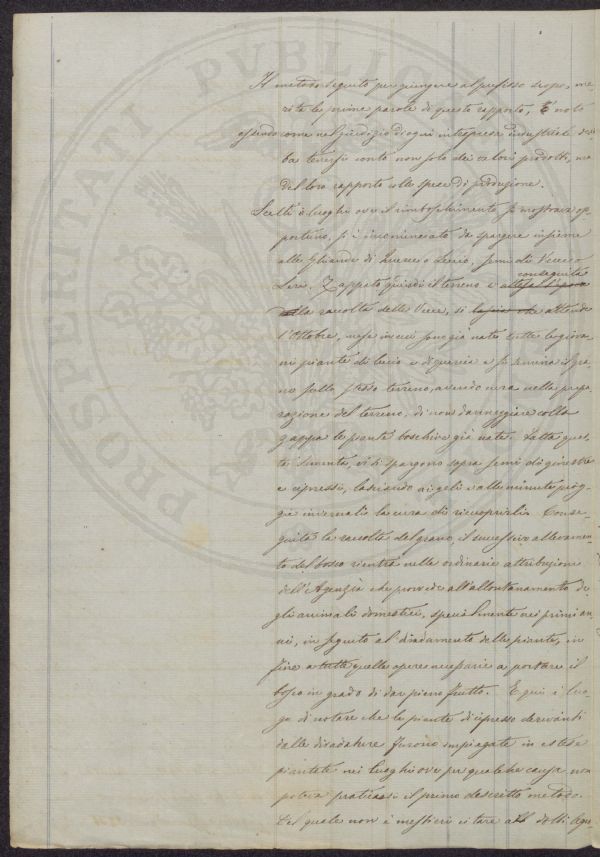 Il metodo seguito per giungere al prefisso scopo, me-
rita le prime parole di questo rapporto, È noto
essendo come nel giudizio di ogni intrapresa industriale deb-
ba tenersi conto non solo dei valori prodotti, ma
del loro rapporto colle spese di produzione.
Scelti i luoghi ove il rimboschimento si mostrava op-
portuno, si è incominciato da spargere insieme
alle Ghiande di Querce e Leccio, semi di Vecce o
Lere. Zappato quindi il terreno e
conseguita
la raccolta delle Vecce, si attende
l'Ottobre, mese in cui son già nate tutte le giova-
ni piante di leccio e di quercia e si semina il gra-
no sullo stesso terreno, avendo cura nella prepa-
razione del terreno, di non danneggiare colla
zappa le piante boschive già nate. Fatta ques-
ta sementa, vi si spargono sopra semi di ginestre
e cipressi, lasciando ai geli e alle minute piog-
gie invernali la cura di ricuoprirli. Conse-
guita la raccolta del grano, il successivo allevamen-
to del bosco rientra nelle ordinarie attribuzioni
dell'Agenzia che provvede all'allontanamento de-
gli animali domestici, specialmente nei primi an-
ni, in seguito al diradamento delle piante, in-
fine a tutte quelle opere necessarie a portare il
bosco in grado di dar pieno frutto. E qui è luo-
go di notare che le piante di cipresso derivanti
dalle diradature furono impiegate in estese
piantate nei luoghi ove per qualche causa non
poteva praticarsi il primo descritto metodo.
Del quale non è mestieri citare all
PROSPERITATI PVBLICAE